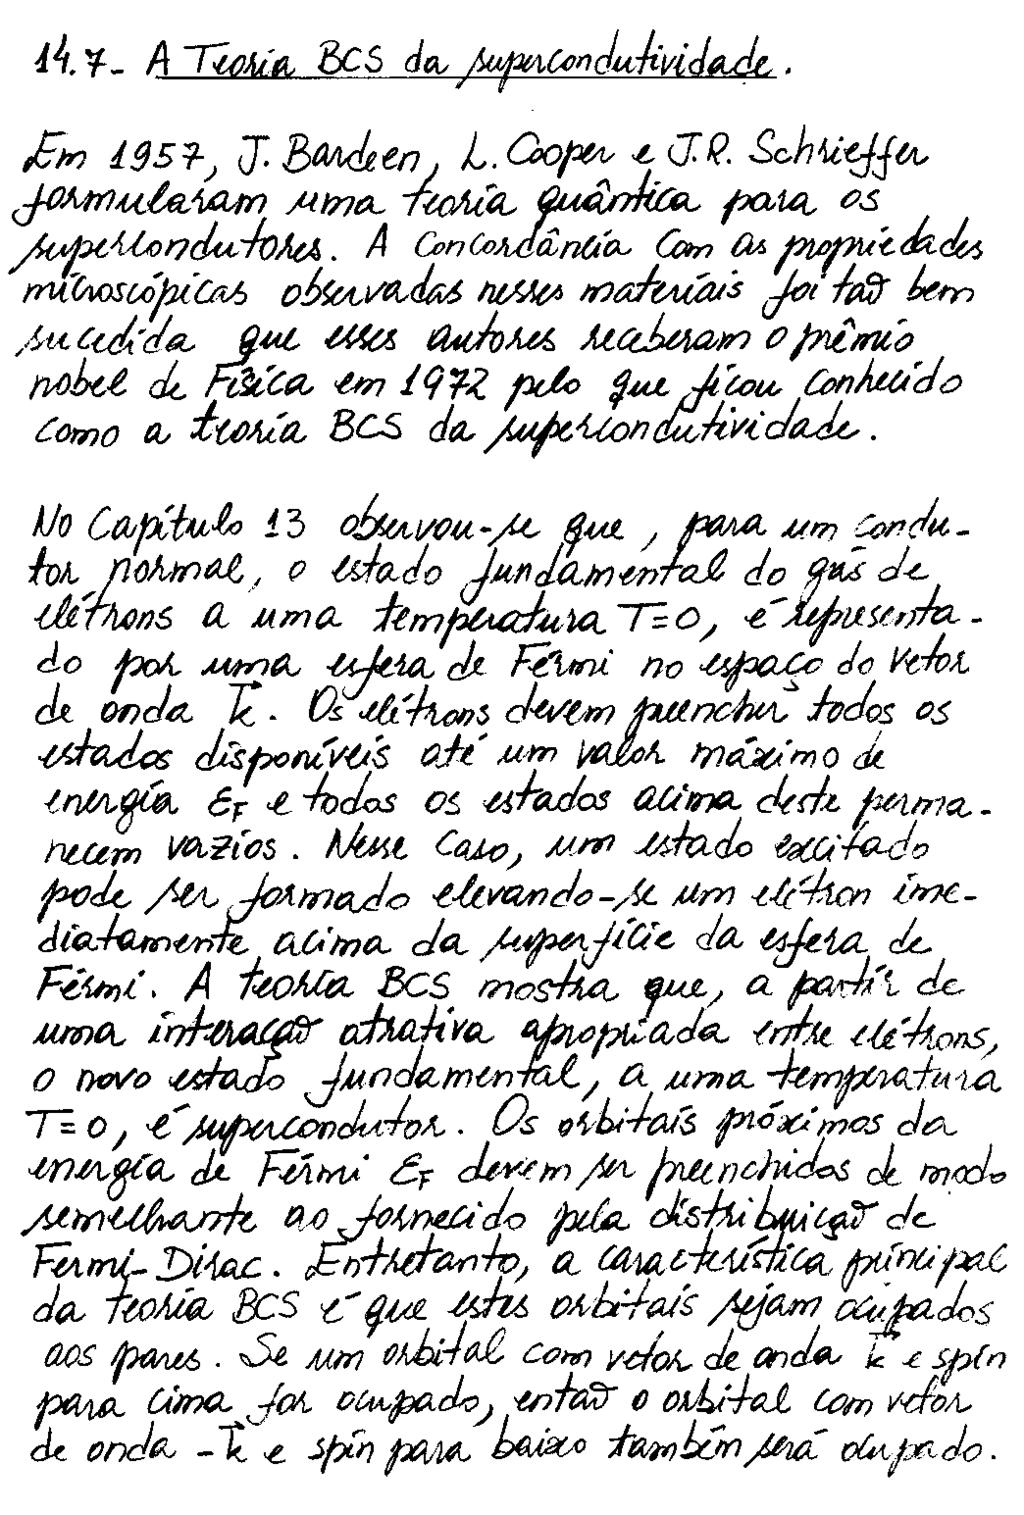 14.7- A Teoria BCS da supercondutividade.
Em 1957, J. Bardeen, L. Cooper e J.R. Schrieffer
formularam uma teoria quântica para os
supercondutores. A concordância com as propriedades
microscópicas observadas nesses materiais foi tão bem
sucedida que esses autores receberam o prêmio
nobel de Física em 1972 pelo que ficou conhecido
como a teoria BCS da supercondutividade.
No Capítulo 13 observou-se que, para um condu-
tor normal, o estado fundamental do gás de
elétrons a uma temperatura T=0, é representa-
do por uma esfera de Férmi no espaço do vetor
de onda k⃗. Os elétrons devem preencher todos os
estados disponíveis até um valor máximo de
energia εF e todos os estados acima deste perma-
necem vazios. Nesse caso, um estado excitado
pode ser formado elevando-se um elétron ime-
diatamente acima da superfície da esfera de
Férmi. A teoria BCS mostra que, a partir de
uma interação atrativa apropriada entre elétrons,
o novo estado fundamental, a uma temperatura
T=0, é supercondutor. Os orbitais próximos da
energia de Férmi εF devem ser preenchidos de modo
semelhante ao fornecido pela distribuição de
Fermi-Dirac. Entretanto, a característica principal
da teoria BCS é que estes orbitais sejam ocupados
aos pares. Se um orbital com vetor de onda k⃗ e spin
para cima for ocupado, então o orbital com vetor
de onda -k⃗ e spin para baixo também será ocupado.